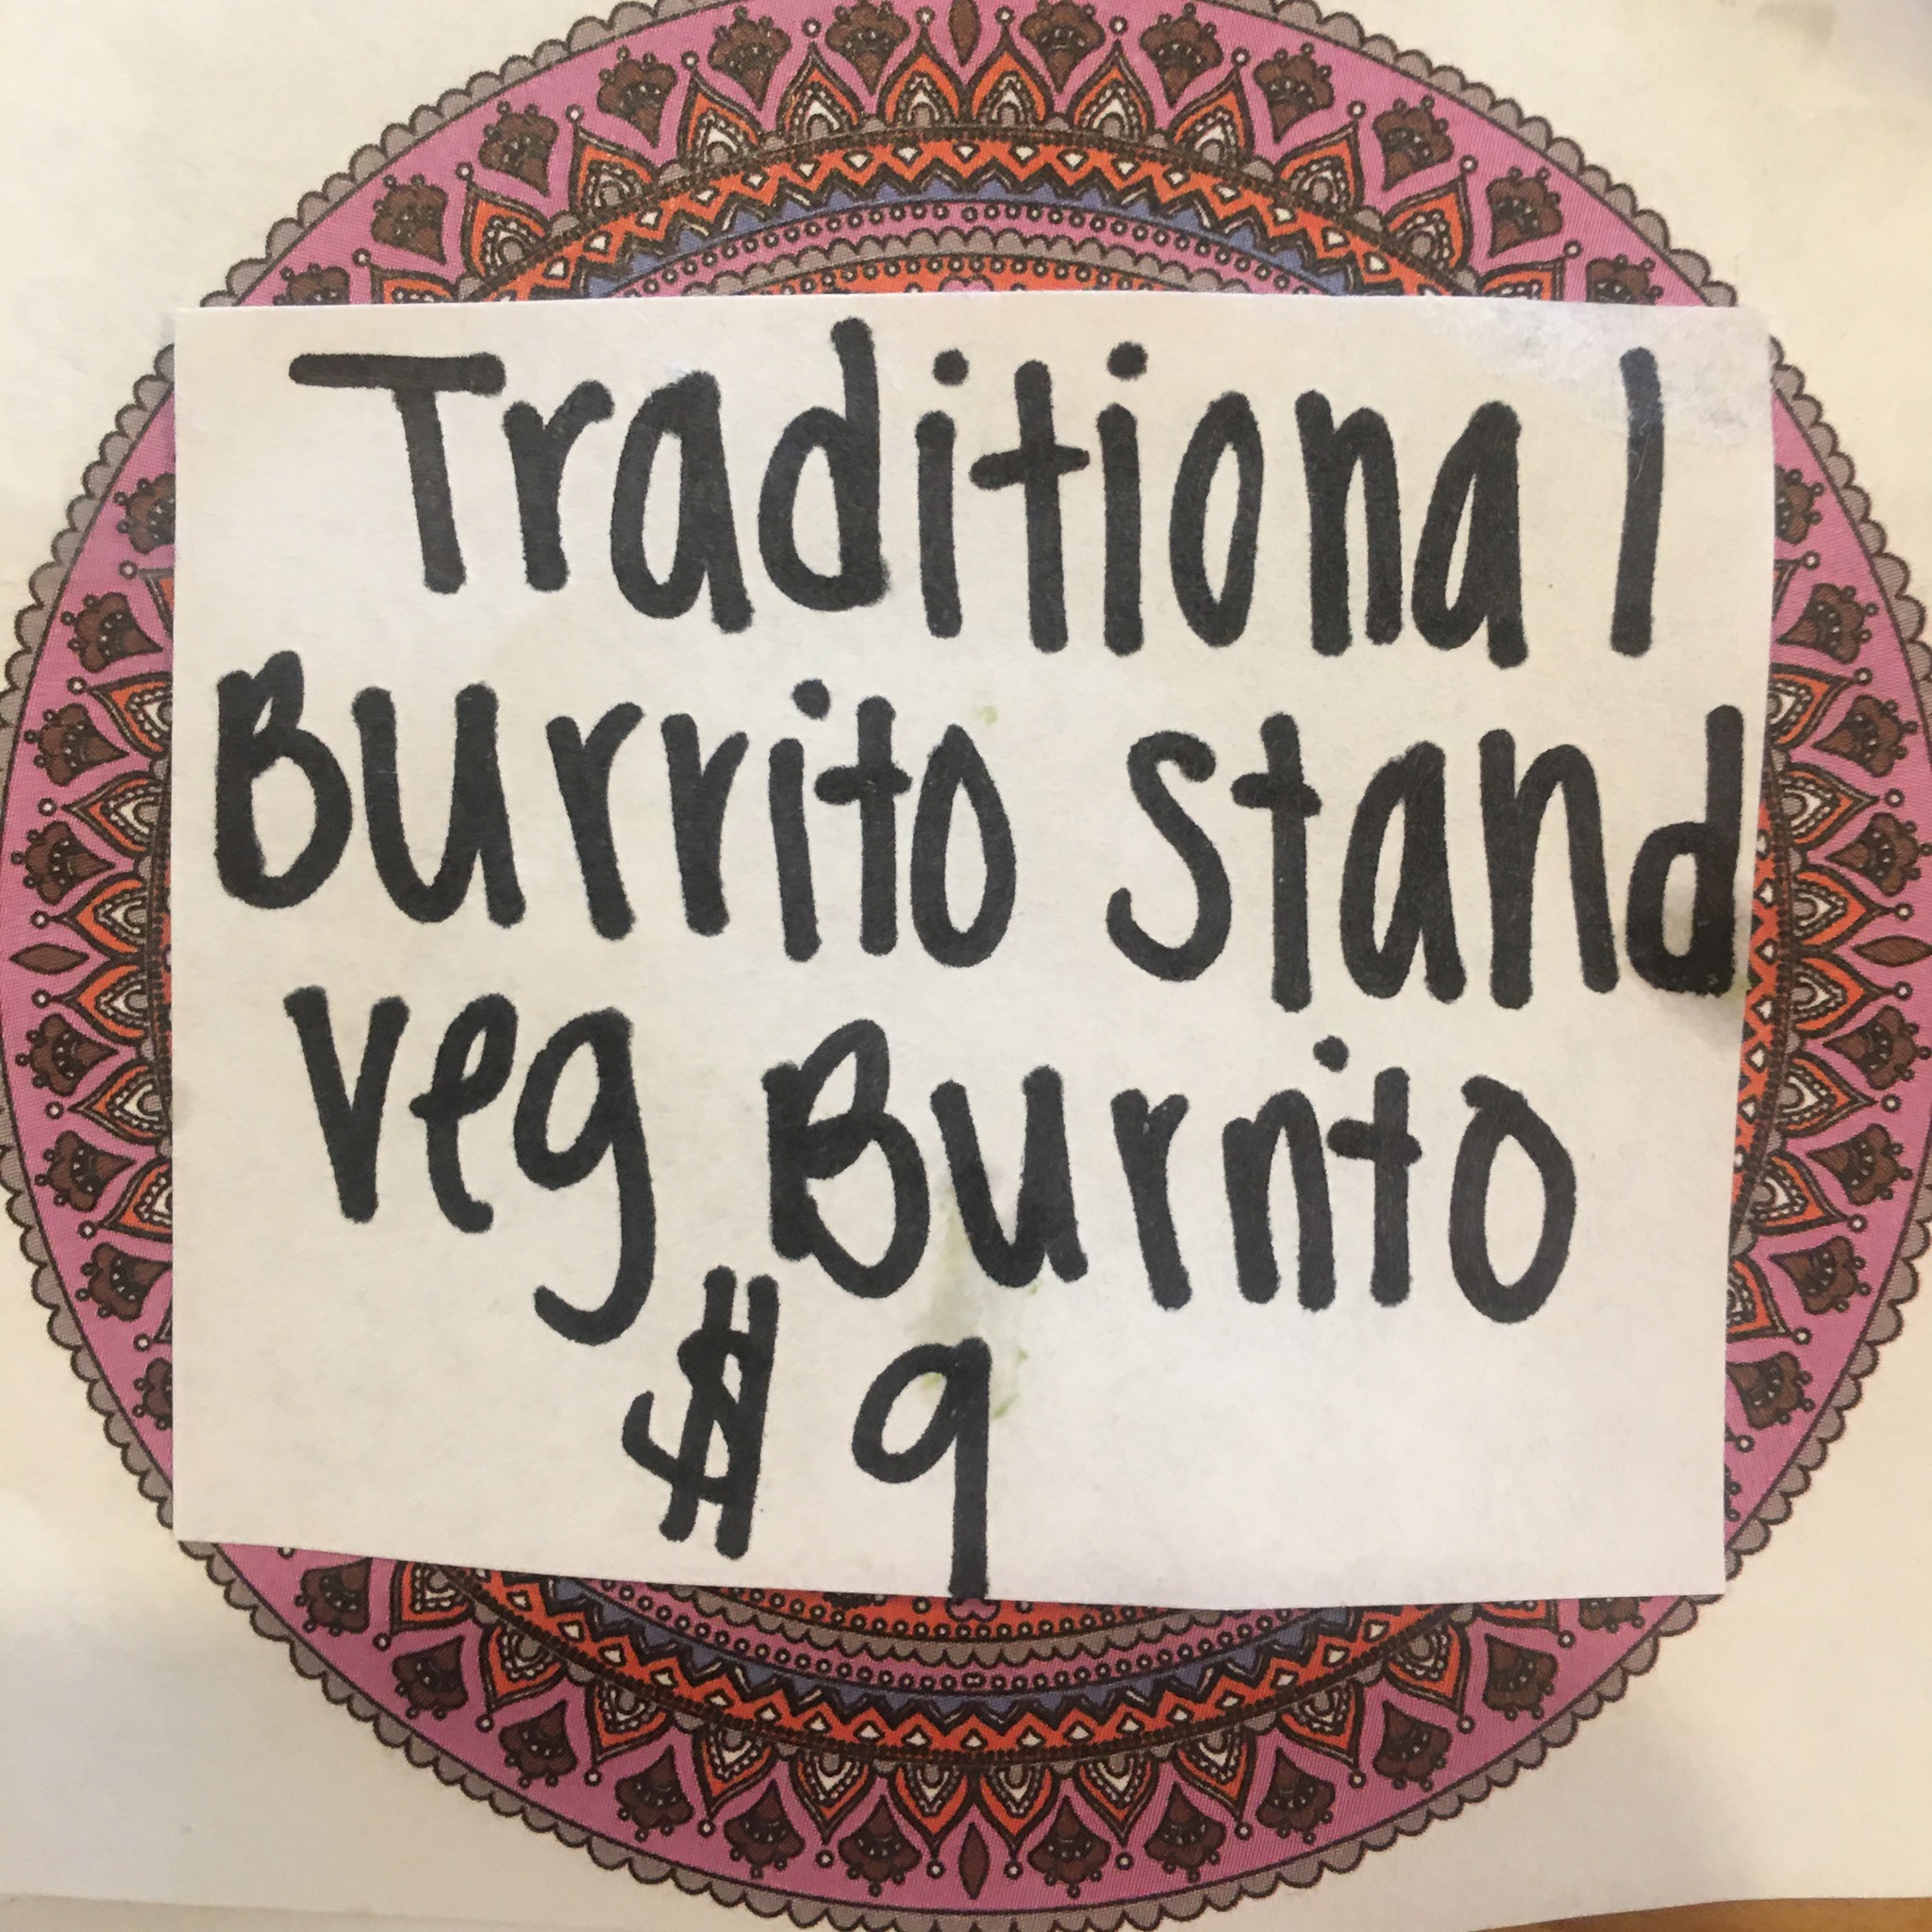 Traditional
Burrito stand
veg Burrito
$9